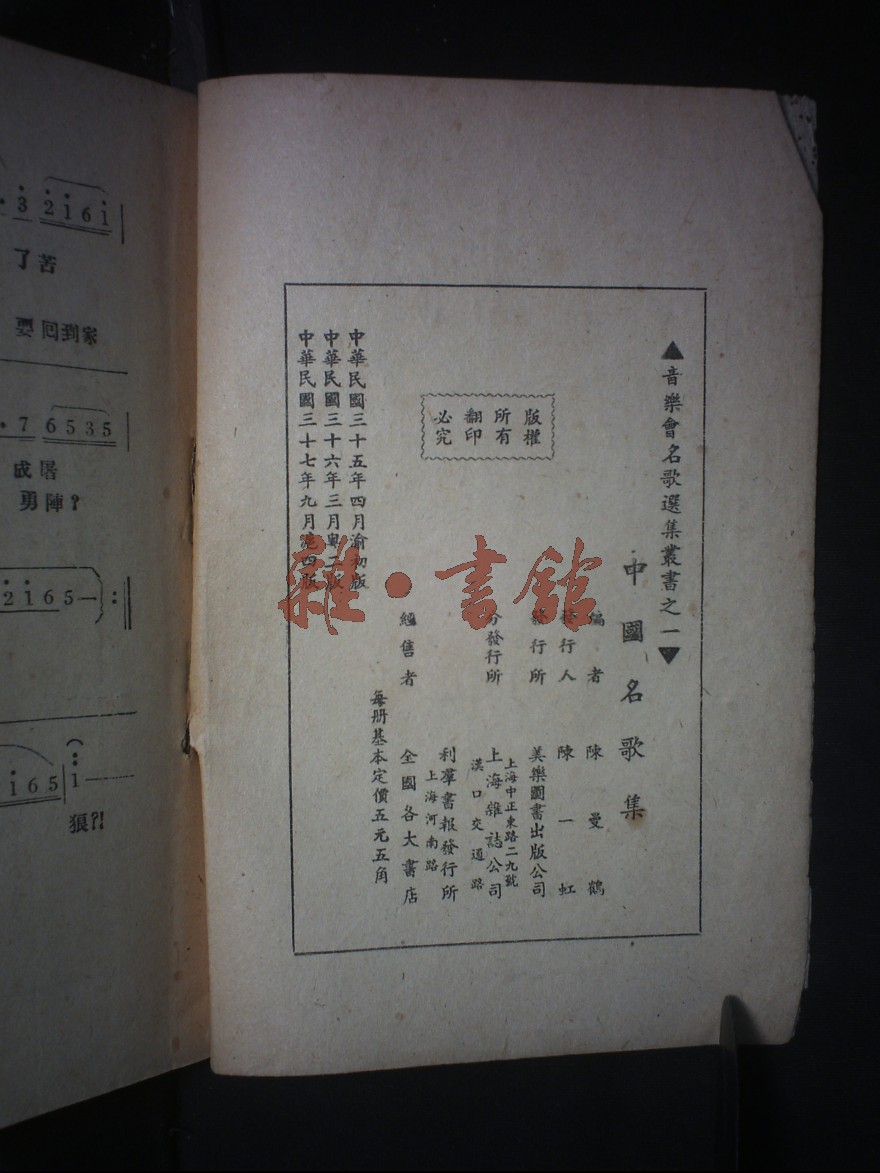 ▲音樂會名歌選集叢書之一▼
中國名歌集
編者 陳曼鶴
發行人 陳一虹
發行所 美樂圖書出版公司
上海中正東路二九號
分發行所 上海雜誌公司
漢口交通路
利羣書報發行所
上海河南路
總售者 全國各大書店
每册基本定價五元五角
版權
所有
翻印
必究
中華民國三十五年四月渝初版
中華民國三十六年三月粵二版
中華民國三十七年九月滬四版
雜·書館
3 2 1 6 1
了苦
要回到家
7 6 5 3 5
成
勇陣?
2 1 6 5 — :
1 6 5 1
狠?!